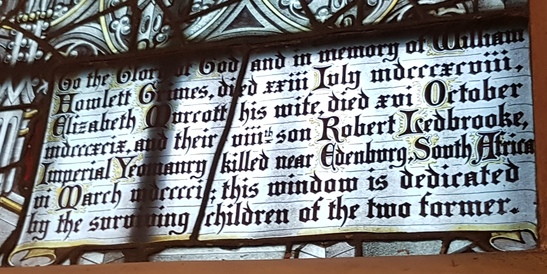 To the Glory of God and in memory of William
Howlett Grimes, died xxiii July mdcccxcviii,
Elizabeth Murcott his wife, died xvi October
mdcccxcix, and their viiith son Robert Ledbrooke,
Imperial Yeomanry killed near Edenburg, South Africa
vi March mdcccci; this window is dedicated
by the surviving children of the two former.